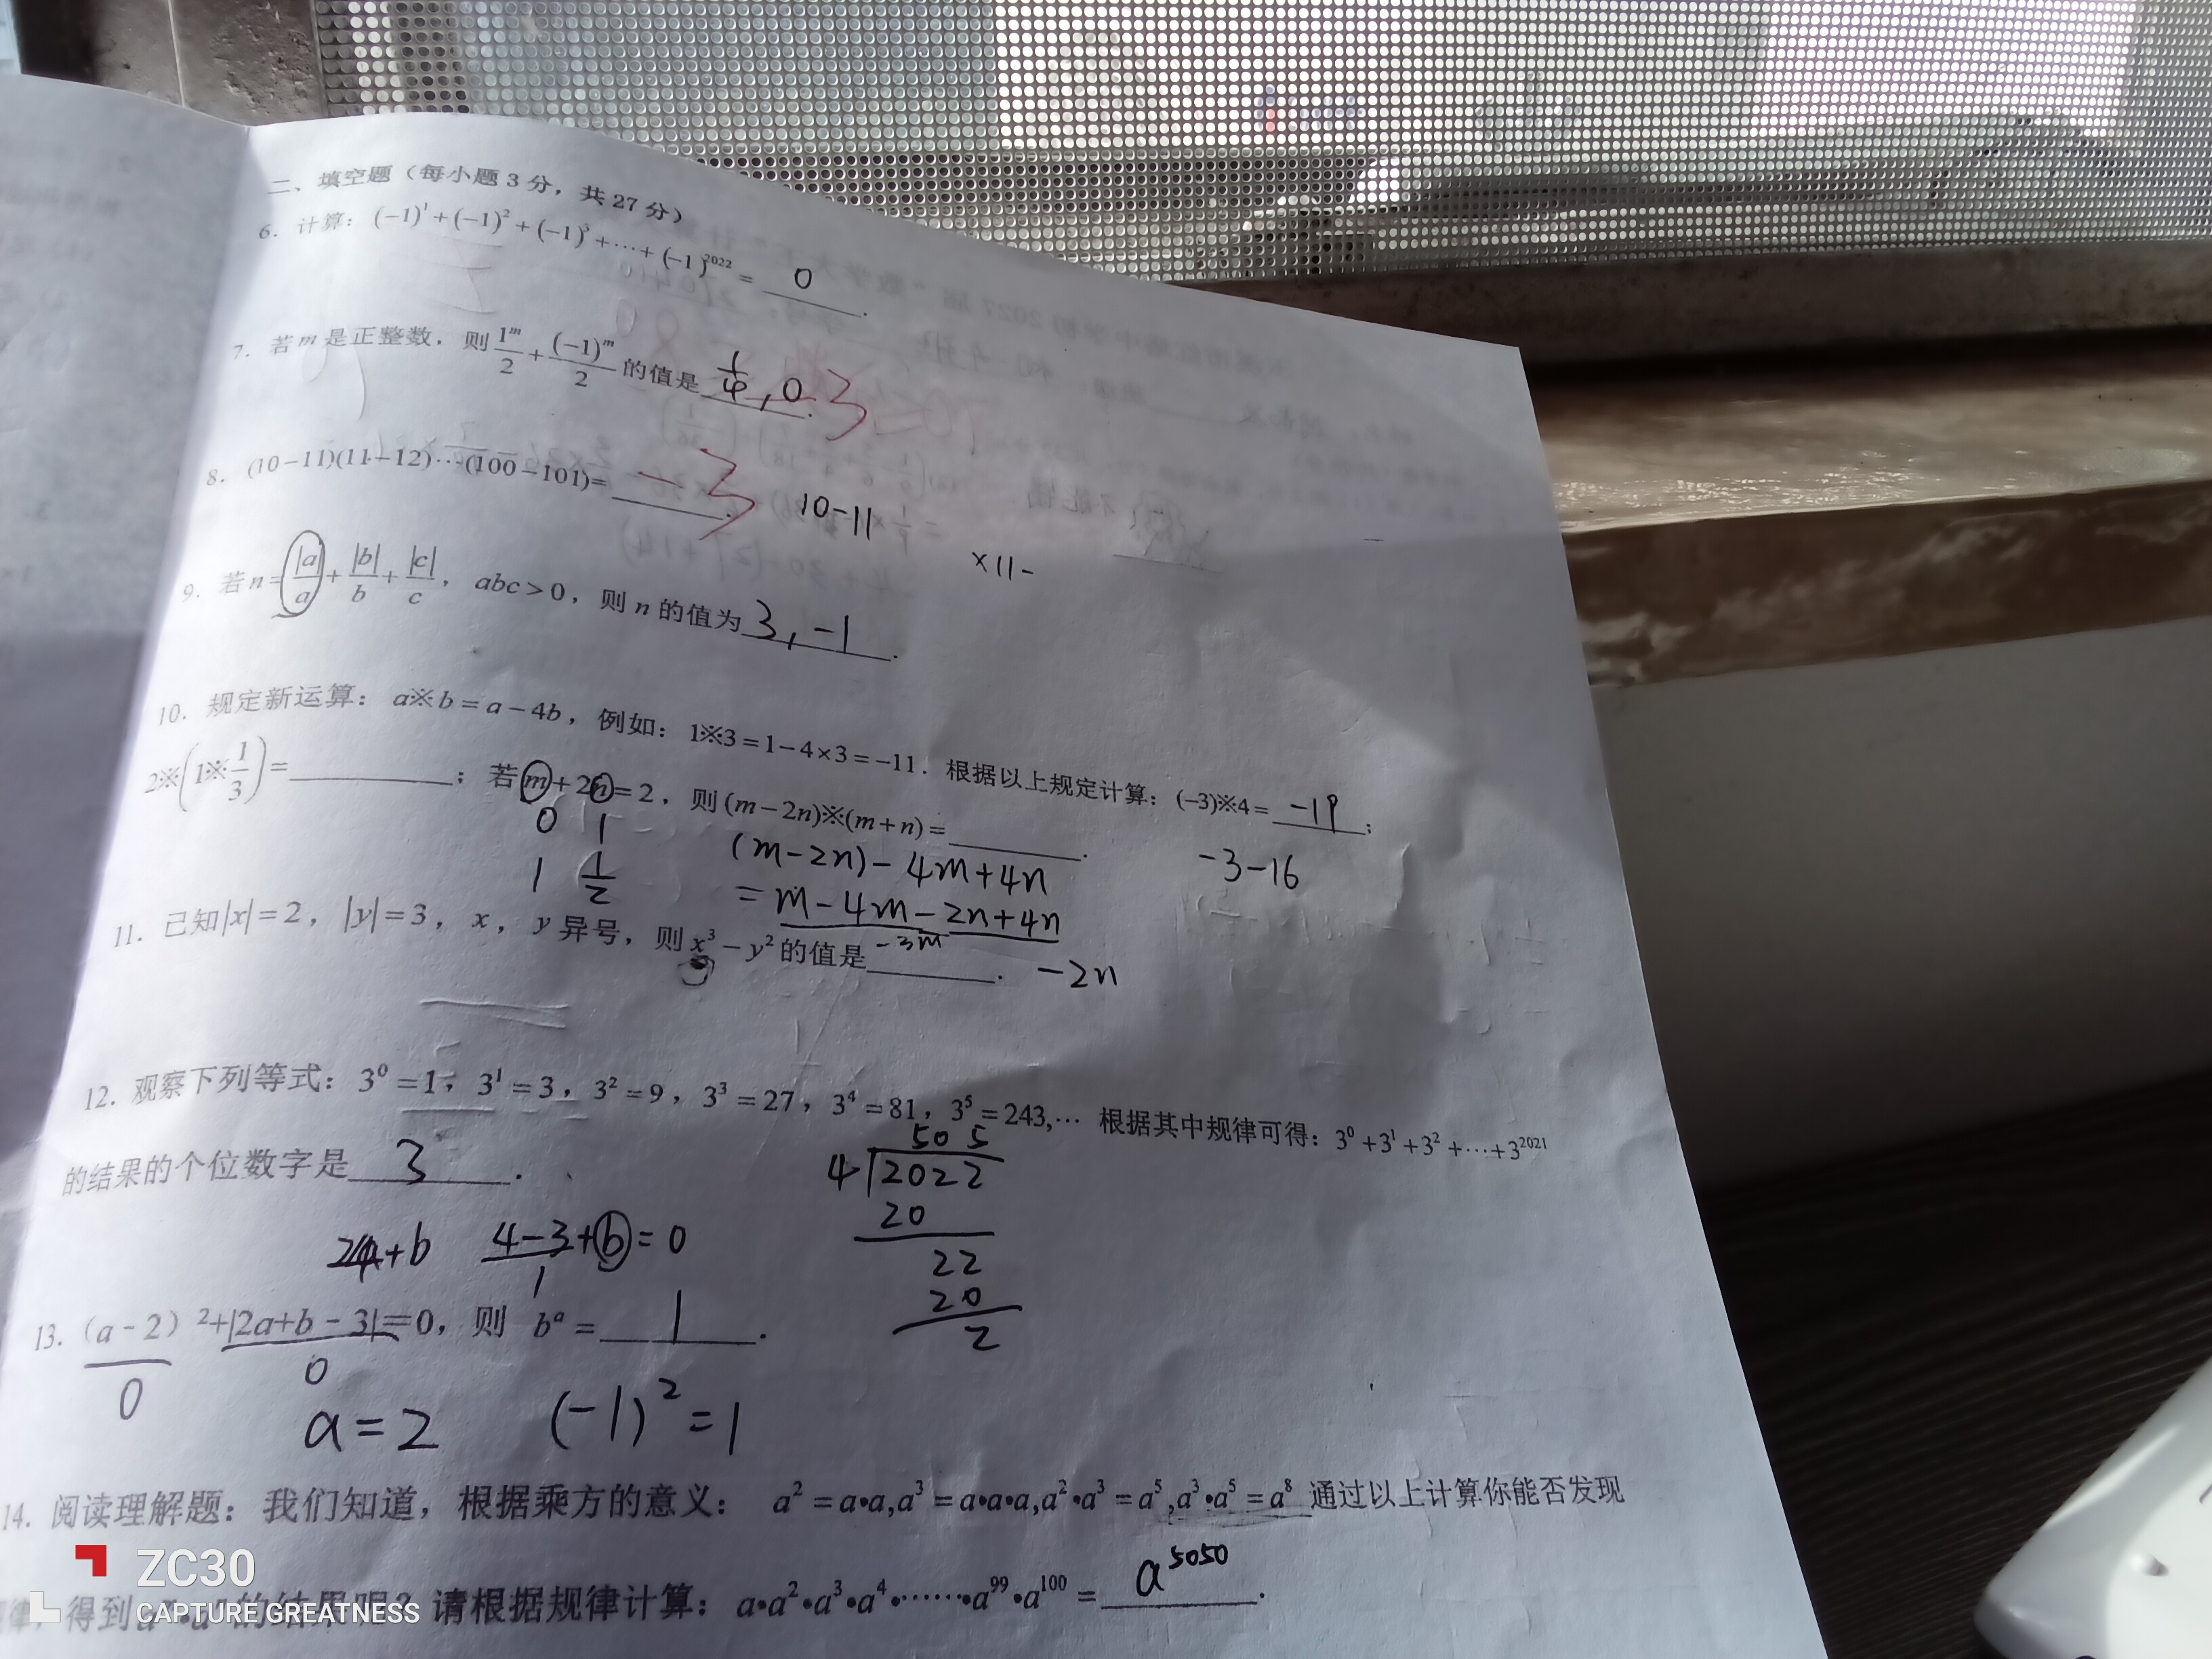 二、填空题（每小题 3 分，共 27 分）
6. 计算：(−1)¹+(−1)²+(−1)³+⋯+(−1)²⁰²² = 0 .
7. 若 m 是正整数，则 1^m/2 + (−1)^m/2 的值是 1/4 , 0 . -3
8. (10−11)(11−12)⋯(100−101)= . -3
10−11
×11−
9. 若 n = |a|/a + |b|/b + |c|/c ，abc > 0，则 n 的值为 3 , −1 .
10. 规定新运算：a※b = a − 4b，例如：1※3 = 1 − 4×3 = −11．根据以上规定计算：(−3)※4 = −19 ；
2※(1※1/3) = ；若 m + 2n = 2，则 (m − 2n)※(m + n) = .
0 1
1 1/2
(m−2n)−4m+4n
−3−16
= m−4m−2n+4n
−3m
−2n
11. 已知|x| = 2，|y| = 3，x，y 异号，则 x³ − y² 的值是 .
12. 观察下列等式：3⁰ = 1，3¹ = 3，3² = 9，3³ = 27，3⁴ = 81，3⁵ = 243,⋯ 根据其中规律可得：3⁰ + 3¹ + 3² + ⋯ + 3²⁰²¹
的结果的个位数字是 3 .
505
4 2022
20
22
20
2
+b 4−3+b=0
1
13. （a - 2）²+|2a+b - 3|=0，则 b^a = 1 .
0 0
a=2 (−1)²=1
14. 阅读理解题：我们知道，根据乘方的意义： a² = a•a,a³ = a•a•a,a²•a³ = a⁵,a³•a⁵ = a⁸ 通过以上计算你能否发现
律，得到 的结果呢？请根据规律计算：a•a²•a³•a⁴•⋯⋯•a⁹⁹•a¹⁰⁰ = a⁵⁰⁵⁰ .
ZC30
CAPTURE GREATNESS